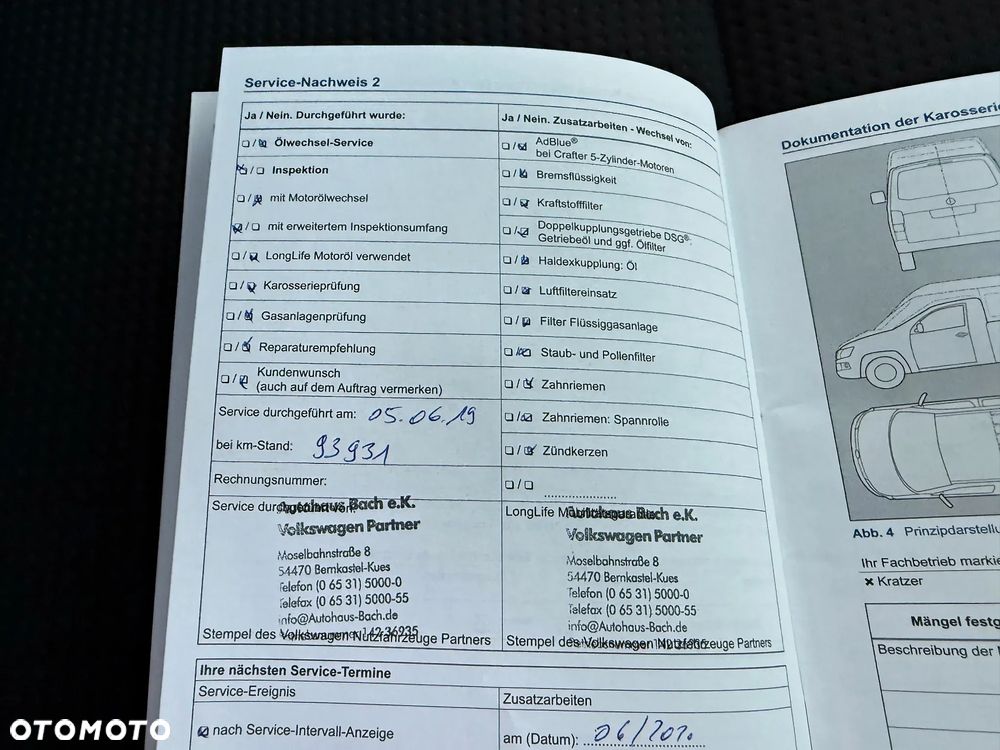 Service-Nachweis 2
Ja / Nein. Durchgeführt wurde:
Ölwechsel-Service
Inspektion
mit Motorölwechsel
mit erweitertem Inspektionsumfang
LongLife Motoröl verwendet
Karosserieprüfung
Gasanlagenprüfung
Reparaturempfehlung
Kundenwunsch
(auch auf dem Auftrag vermerken)
Service durchgeführt am: 05.06.19
bei km-Stand: 93931
Rechnungsnummer:
Service durchgeführt von:
Autohaus Bach e.K.
Volkswagen Partner
Moselbahnstraße 8
54470 Bernkastel-Kues
Telefon (0 65 31) 5000-0
Telefax (0 65 31) 5000-55
info@Autohaus-Bach.de
Stempel des Volkswagen Nutzfahrzeuge Partners
Ja / Nein. Zusatzarbeiten - Wechsel von:
AdBlue®
bei Crafter 5-Zylinder-Motoren
Bremsflüssigkeit
Kraftstofffilter
Doppelkupplungsgetriebe DSG®:
Getriebeöl und ggf. Ölfilter
Haldexkupplung: Öl
Luftfiltereinsatz
Filter Flüssiggasanlage
Staub- und Pollenfilter
Zahnriemen
Zahnriemen: Spannrolle
Zündkerzen
LongLife
Autohaus Bach e.K.
Volkswagen Partner
Moselbahnstraße 8
54470 Bernkastel-Kues
Telefon (0 65 31) 5000-0
Telefax (0 65 31) 5000-55
info@Autohaus-Bach.de
Stempel des Volkswagen Nutzfahrzeuge Partners
Ihre nächsten Service-Termine
Service-Ereignis
nach Service-Intervall-Anzeige
Zusatzarbeiten
am (Datum): 06/2020
Dokumentation der
Abb. 4
Ihr Fachbetrieb
✖ Kratzer
Mängel
Beschreibung der
OTOMOTO